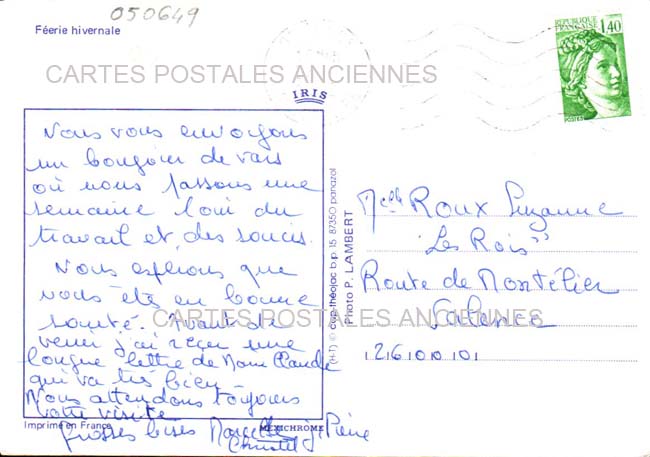 050649
Féerie hivernale
RÉPUBLIQUE
FRANÇAISE
1,40
POSTES
CARTES POSTALES ANCIENNES
IRIS
Nous vous envoyons
un bonjour de vars
où nous passons une
semaine loin du
travail et des soucis.
Nous espérons que
vous êtes en bonne
santé. Avant de
venir j'ai reçu une
longue lettre de Mom Claude
qui va très bien -
Nous attendons toujours
votre visite
Grosses bises Marcelle J. Pierre
Christel
CARTES POSTALES ANCIENNES
Imprimé en France
MEXICHROME
(H-T) © cap-théojac b.p. 15 87350 panazol
Photo P. LAMBERT
Melle ROUX Suzanne
"Les Rois"
Route de Montélier
Valence
26000